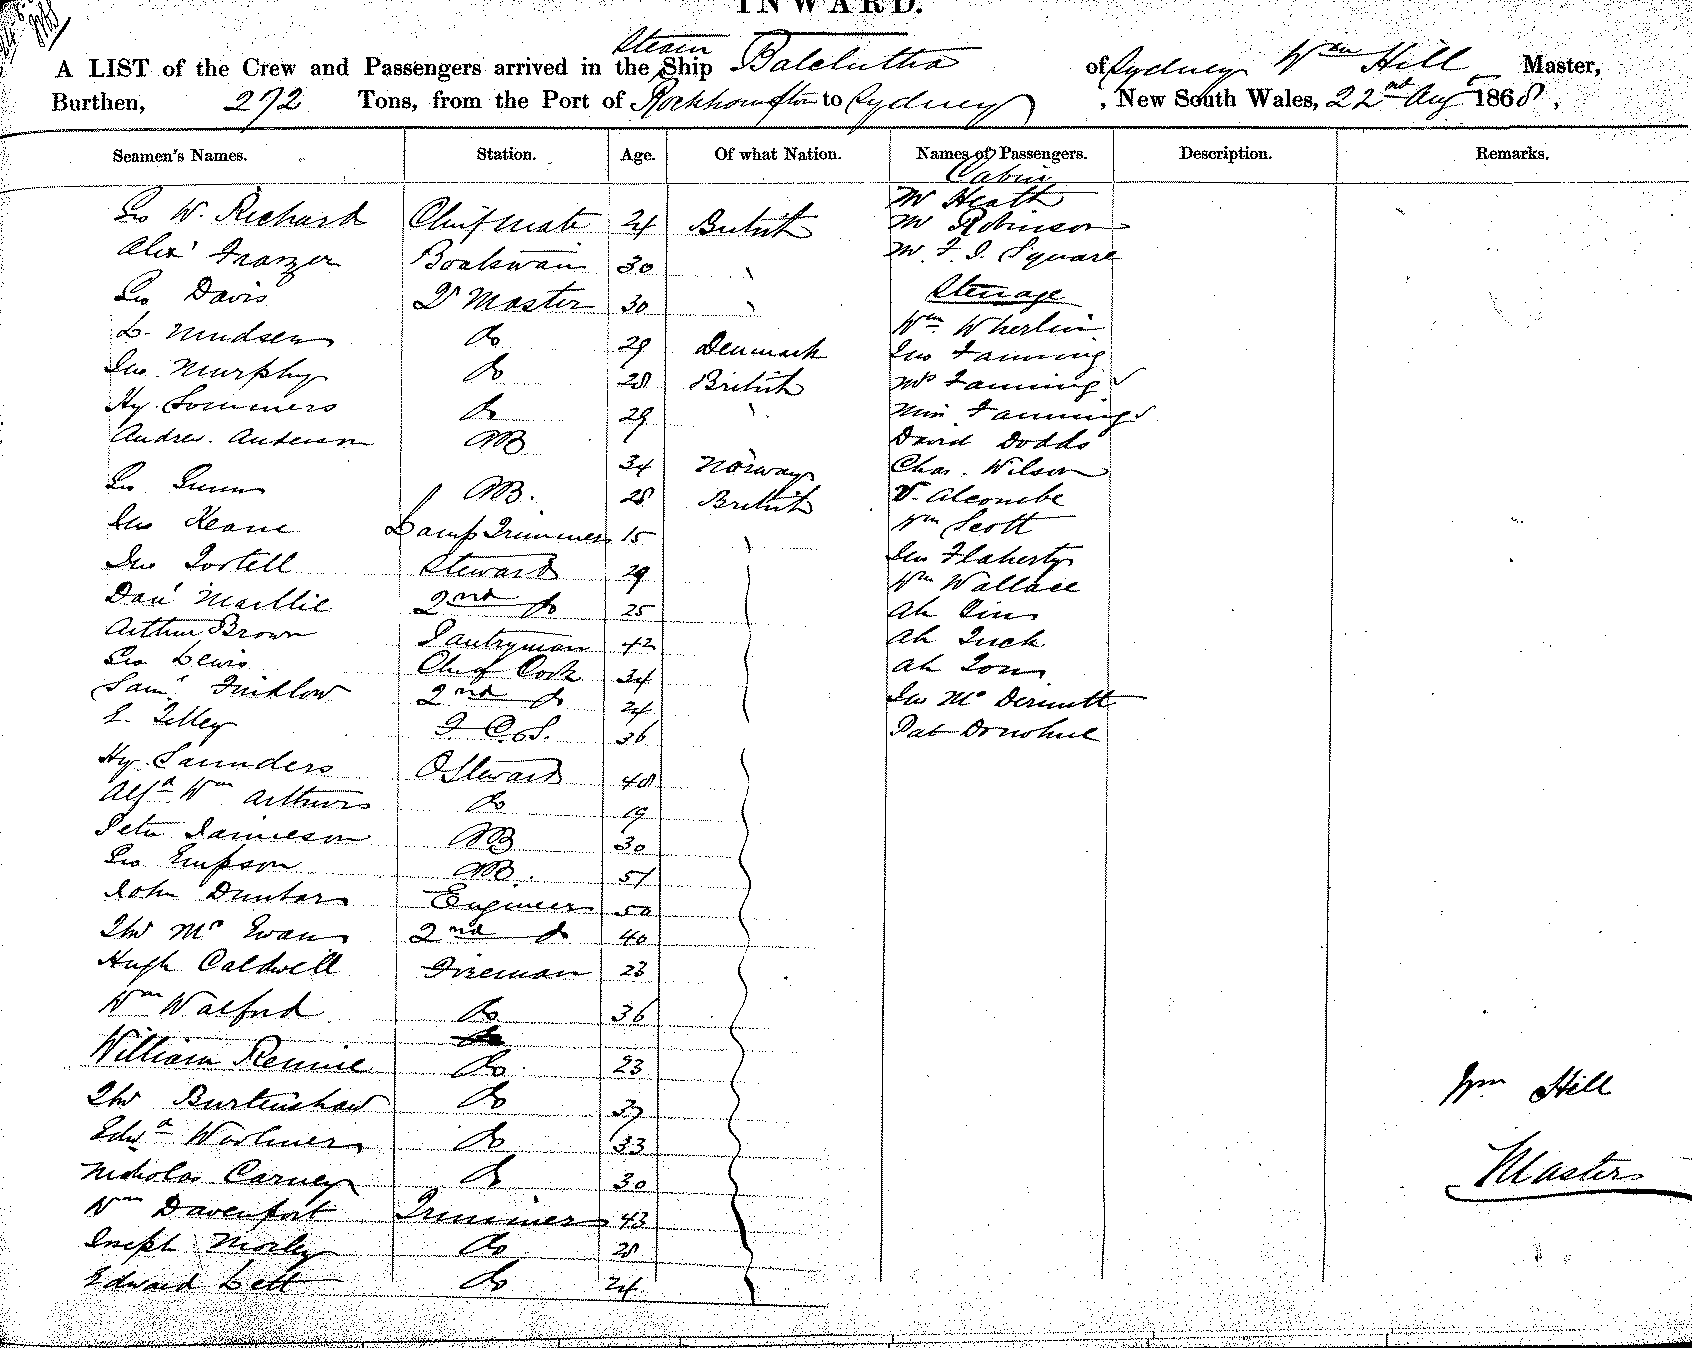 INWARD.
A LIST of the Crew and Passengers arrived in the Steam Ship Balclutha of Sydney Wm Hill Master,
Burthen, 272 Tons, from the Port of Rockhampton to Sydney, New South Wales, 22nd Aug 1868.
Seamen's Names. Station. Age. Of what Nation. Names of Passengers. Description. Remarks.
Cabin
Mr Heath
Geo W. Richard Chief Mate 24 British Mr Robinson
Alexr Boatswain 30 " Mr F. J. Square
Geo Davis Qr Master 30 " Steerage
Wm Wherlin
L. Do 29 Denmark Jno Fanning
Jno Murphy Do 28 British Mrs Fanning
Hy. Sommers Do 29 " Miss Fanning
Andrew Anderson AB David Dodds
34 Norway Chas. Wilson
Geo Gunn AB. 28 British V. Alcombe
Jno Keane Lamp Trimmer 15 " Wm Scott
Jno Tortell Steward 29 Jno Flaherty
Wm Wallace
Danl Maillie 2nd do 25 Ah
Arthur Brown Pantryman 42 Ah
Geo Lewis Chief Cook 34 Ah
Saml 2nd do 24 Jno McDermott
E. Tilley F. C. S. 36 Pat Donohue
Hy Saunders O Steward 48
Alfd Wm Arthurs Do 19
Peter Jamieson AB 30
Geo Empson AB. 51
John Dunbar Engineer 50
Thos McEwan 2nd do 40
Hugh Caldwell Fireman 23
Wm Walford Do 36
William Rennie Do 23
Wm Hill
Thos Burtenshaw Do 37
Edwd Do 33
Master
Nicholas Carney Do 30
Wm Davenport Trimmer 43
Joseph Morley Do 28
Edward Lett Do 24